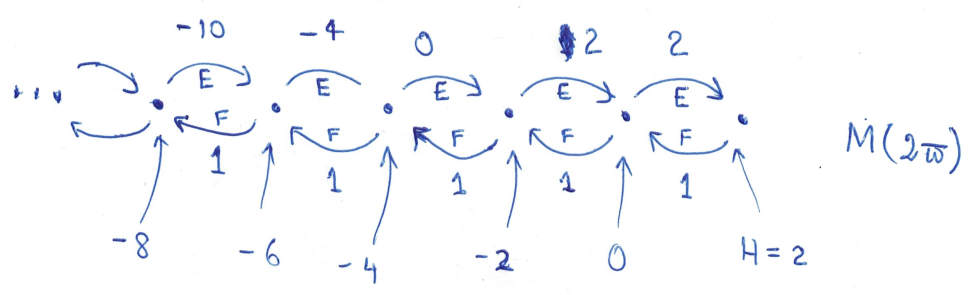 -10 -4 0 2 2
... E E E E E
F F F F F M(2ϖ)
1 1 1 1 1
-8 -6 -4 -2 0 H = 2